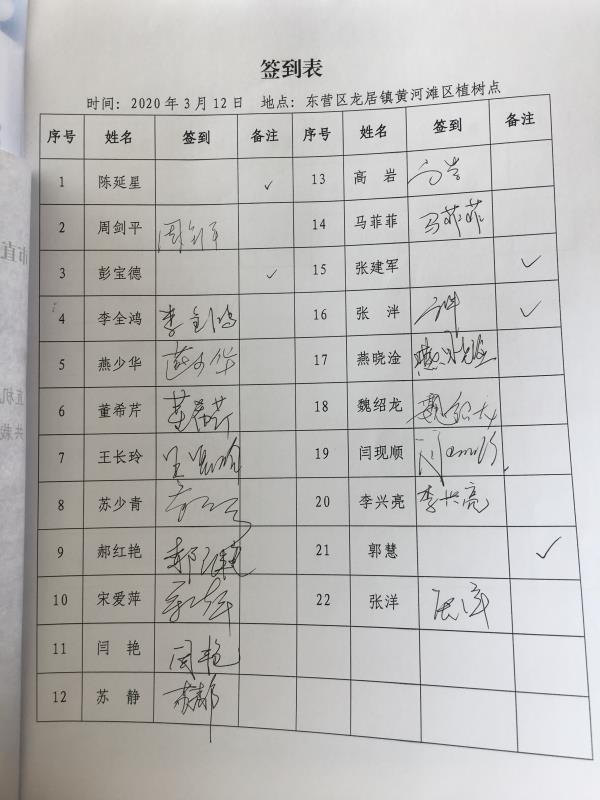 签到表
时间：2020年3月12日 地点：东营区龙居镇黄河滩区植树点
序号 姓名 签到 备注 序号 姓名 签到 备注
1 陈延星 ✓ 13 高 岩 高岩
2 周剑平 周剑平 14 马菲菲 马菲菲
3 彭宝德 ✓ 15 张建军 ✓
4 李全鸿 李全鸿 16 张 泮 ✓
5 燕少华 燕少华 17 燕晓淦 燕晓淦
6 董希芹 董希芹 18 魏绍龙 魏绍龙
7 王长玲 王长玲 19 闫现顺
8 苏少青 20 李兴亮 李兴亮
9 郝红艳 郝红艳 21 郭慧 ✓
10 宋爱萍 22 张洋 张洋
11 闫 艳 闫艳
12 苏 静